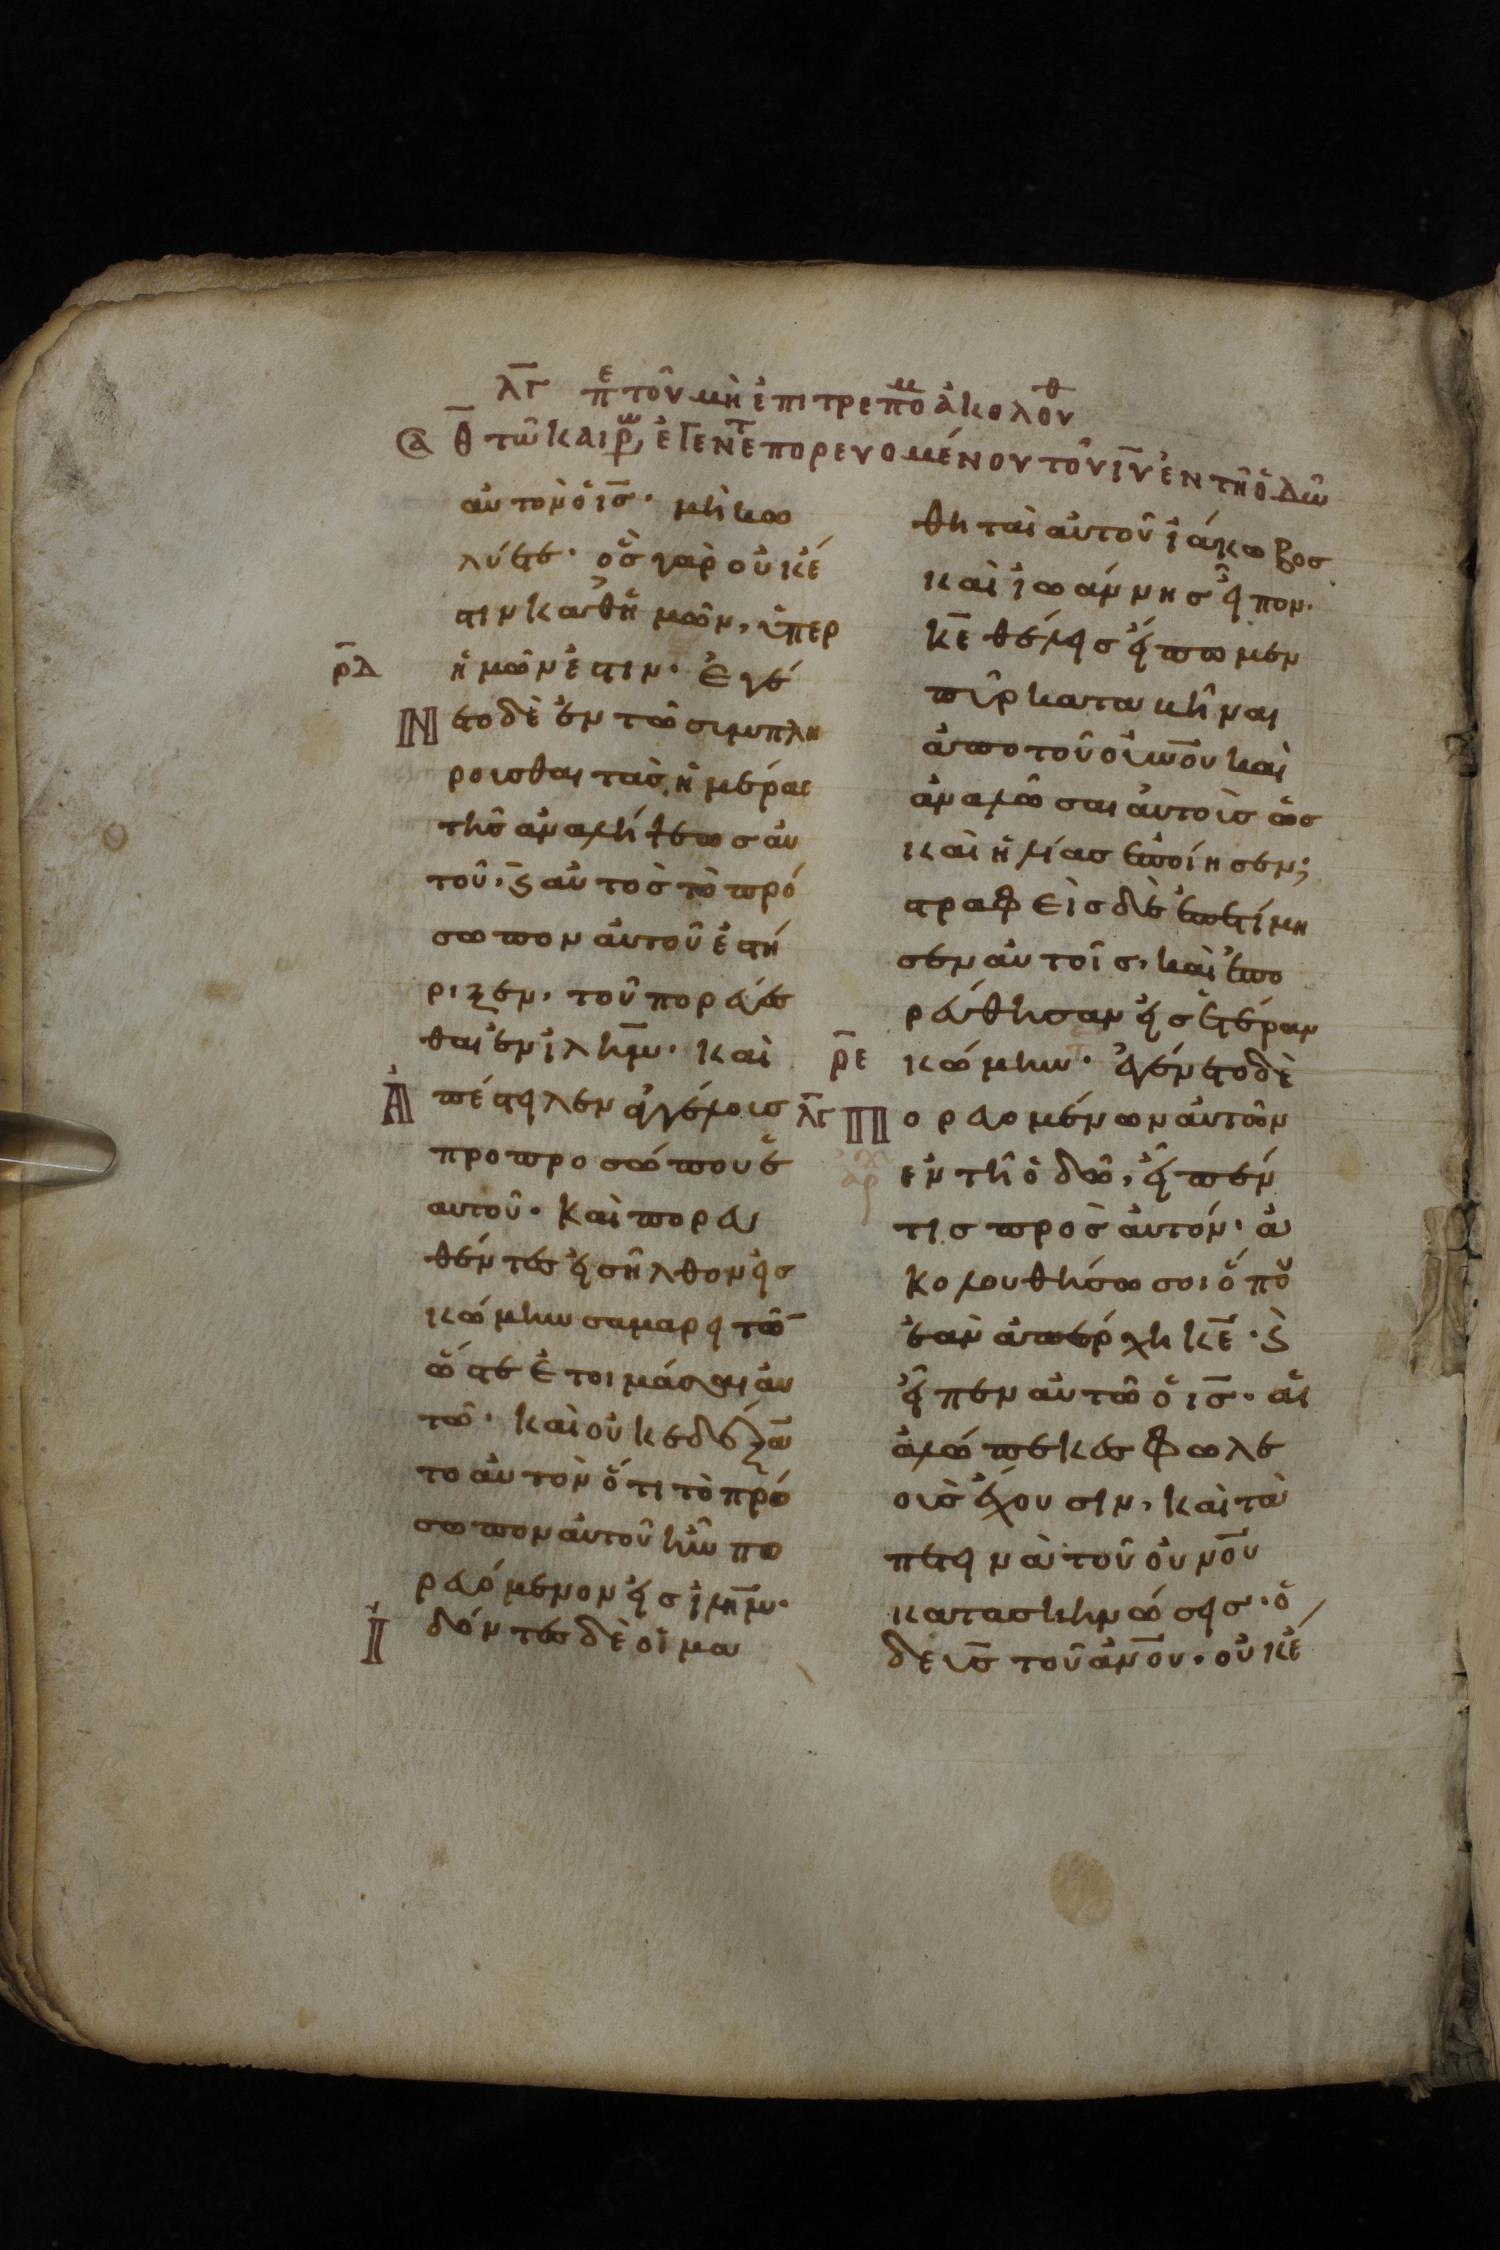 λγ πε τοῦ μὴ ἐπιτρεπομ ἀκολουθ
θ τῶ καιρῶ, ἐγένετ πορευομένου τοῦ ιυ ἐν τῆ ὁδῶ
αυτον ὁ ισ· μὴ κω
λύετε· ὃσ γὰρ οὐκ έ
στιν καθ ἡμῶν, ὑπερ
ρδ ἡμῶν ἐστιν· Ἐγέ
Ν ετο δὲ ἐν τῶ συμπλη
ροισθαι τὰσ ἡμέρασ
τῆσ ἀναλήψεωσ αυ
τοῦ, ϛ αὐτοσ τὸ πρό
σωπον ἀυτοῦ ἐστή
ριζεν, τοῦ πορεύεσ
θαι ἐν ιλημ· καὶ
Ἀ πέστειλεν ἀγγέλουσ
προ προσώπου ἑ
αυτοῦ· Καὶ πορευ
θέντεσ εἰσῆλθον εἰσ
κώμην σαμαρειτῶ
ὥστε ἑτοιμάσαι αυ
τῶ· Καὶ οὐκ εδέξαν
το ἀυτὸν ὅτι τὸ πρό
σωπον ἀυτοῦ ἦν πο
ρευόμενον εἰσ ιλημ·
Ἰ δόντεσ δὲ οἱ μα
θηταὶ ἀυτοῦ ἰάκωβοσ
καὶ ἰωάννησ εἶπον·
κε θέλεισ εἴπωμεν
πῦρ καταβῆναι
ἀπὸ τοῦ οὐνου καὶ
ἀναλῶσαι ἀυτοὺσ ὡσ
καὶ ἠλίασ ἐποίησεν;
στραφεὶσ δὲ ἐπετίμη
σεν αυτοῖσ, καὶ ἐπο
ρεύθησαν εἰσ ἑτέραν
ρε κώμην· Ἐγένετο δὲ
λγ Π ορευομένων ἀυτῶν
ἐν τῆ ὁδῶ, εἶπέν
τισ προσ ἀυτόν· ἀ
κολουθήσω σοι ὅπου
ἐὰν ἀπέρχη κε· ϛ
εἶπεν αυτῶ ὁ ισ· αἱ
ἀλώπεκεσ φωλε
οὺσ ἔχουσιν, καὶ τὰ
πετεινὰ τοῦ οὐνου
κατασκηνώσεισ· ὁ
δε υσ τοῦ ἀνου, οὐκ έ